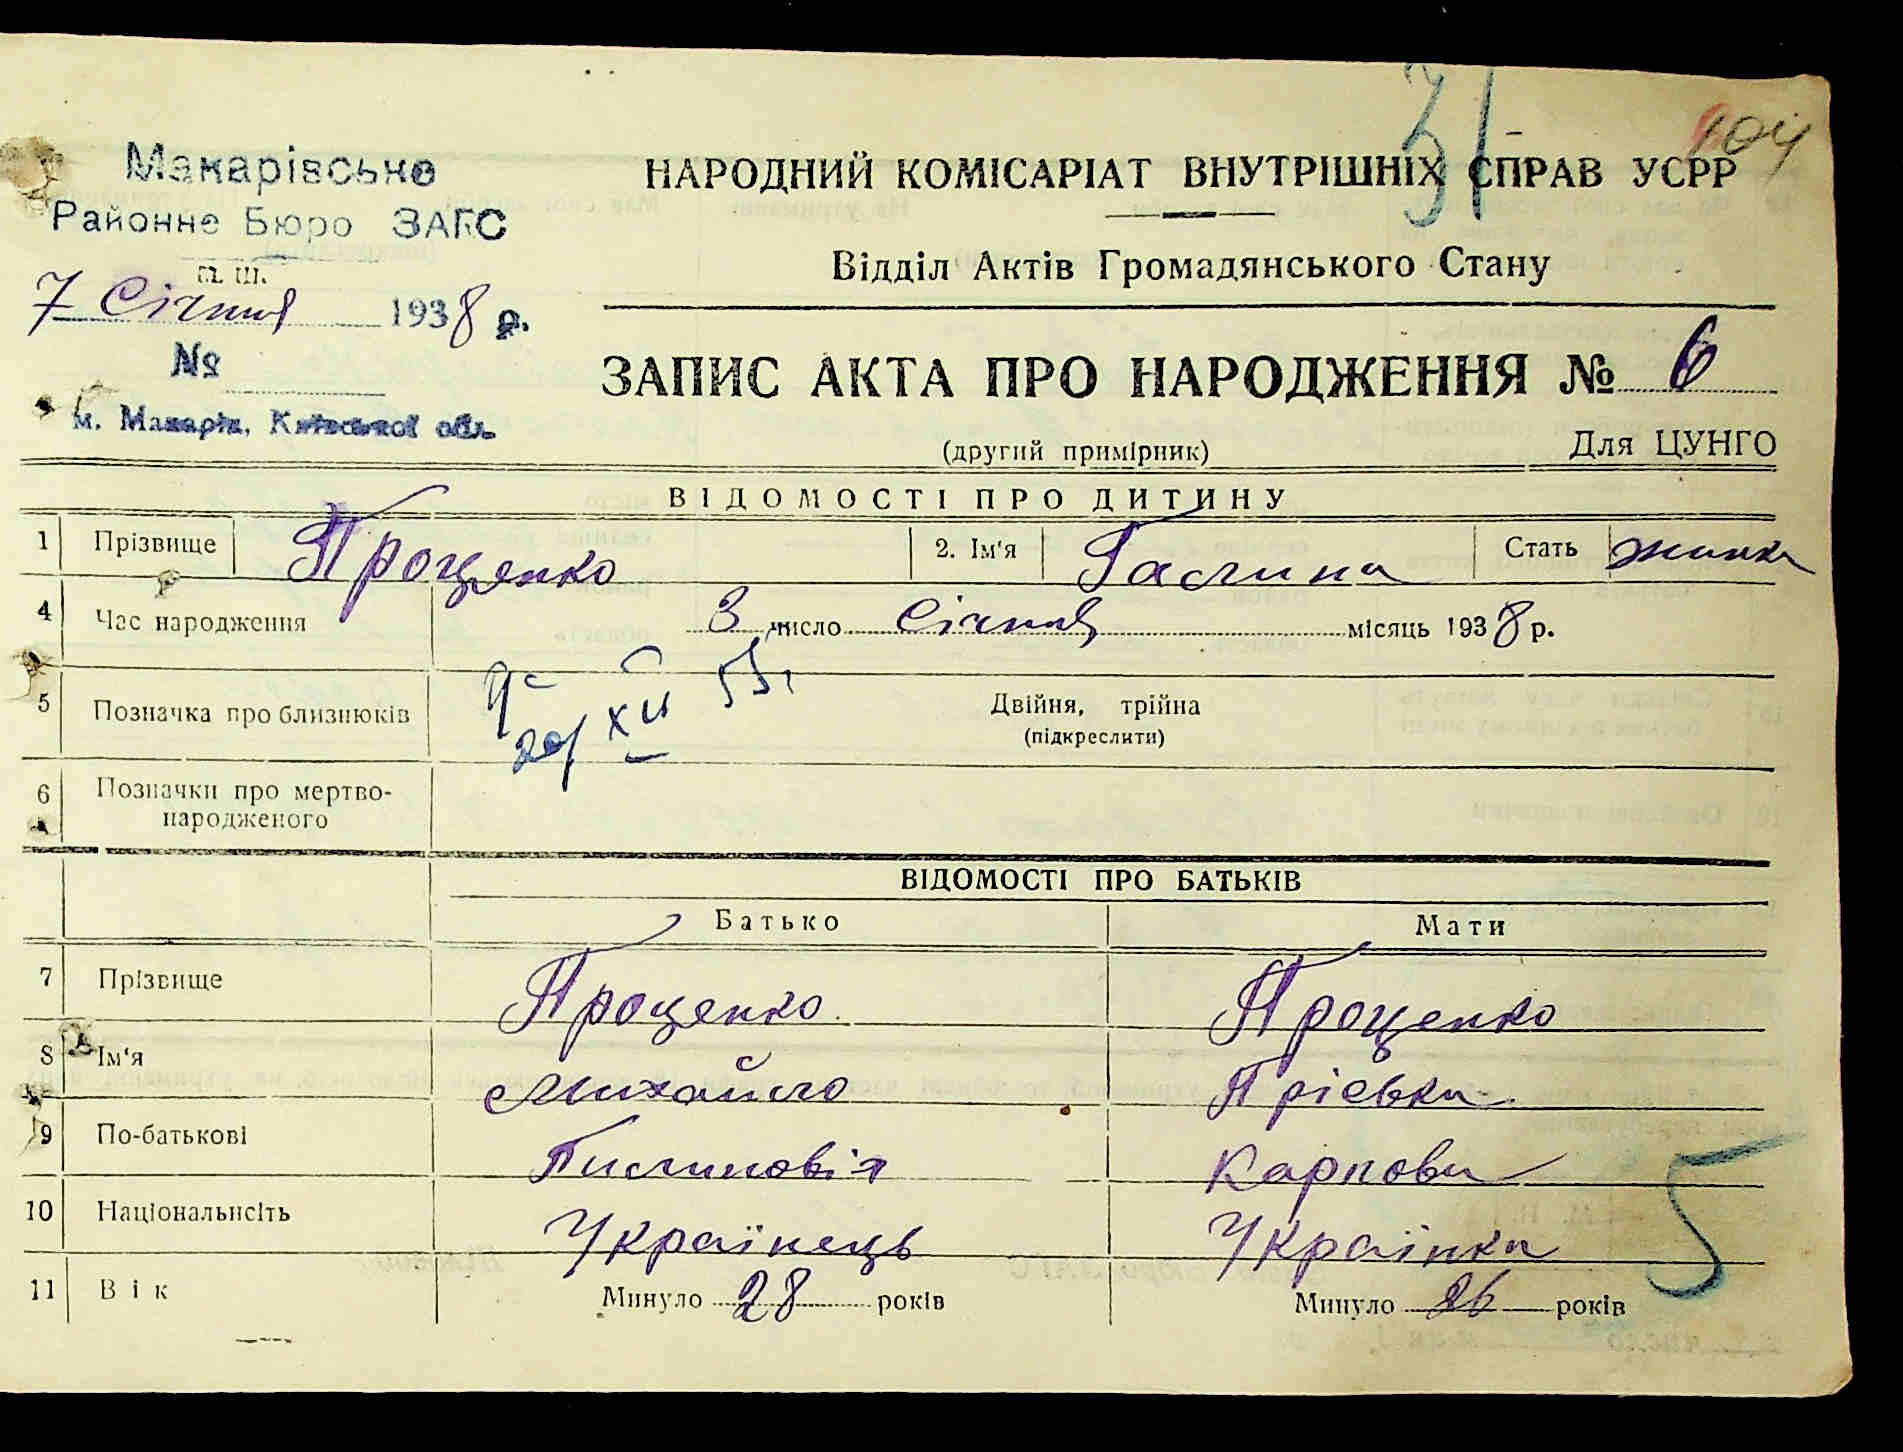 31
104
Макарівське
Районне Бюро ЗАГС
7 Січня 1938 р.
№
м. Макарів, Київської обл.
НАРОДНИЙ КОМІСАРІАТ ВНУТРІШНІХ СПРАВ УСРР
Відділ Актів Громадянського Стану
ЗАПИС АКТА ПРО НАРОДЖЕННЯ № 6
(другий примірник)
Для ЦУНГО
ВІДОМОСТІ ПРО ДИТИНУ
1 Прізвище Проценко 2. Ім'я Галина Стать жінка
4 Час народження 3 число Січня місяць 1938 р.
5 Позначка про близнюків Двійня, трійна
(підкреслити)
XII 55
6 Позначки про мертво-
народженого
ВІДОМОСТІ ПРО БАТЬКІВ
Батько Мати
7 Прізвище Проценко Проценко
8 Ім'я Михайло Пріська
9 По-батькові Пилиповіч Карповн
10 Національнсіть Українець Українка
11 Вік Минуло 28 років Минуло 26 років
5